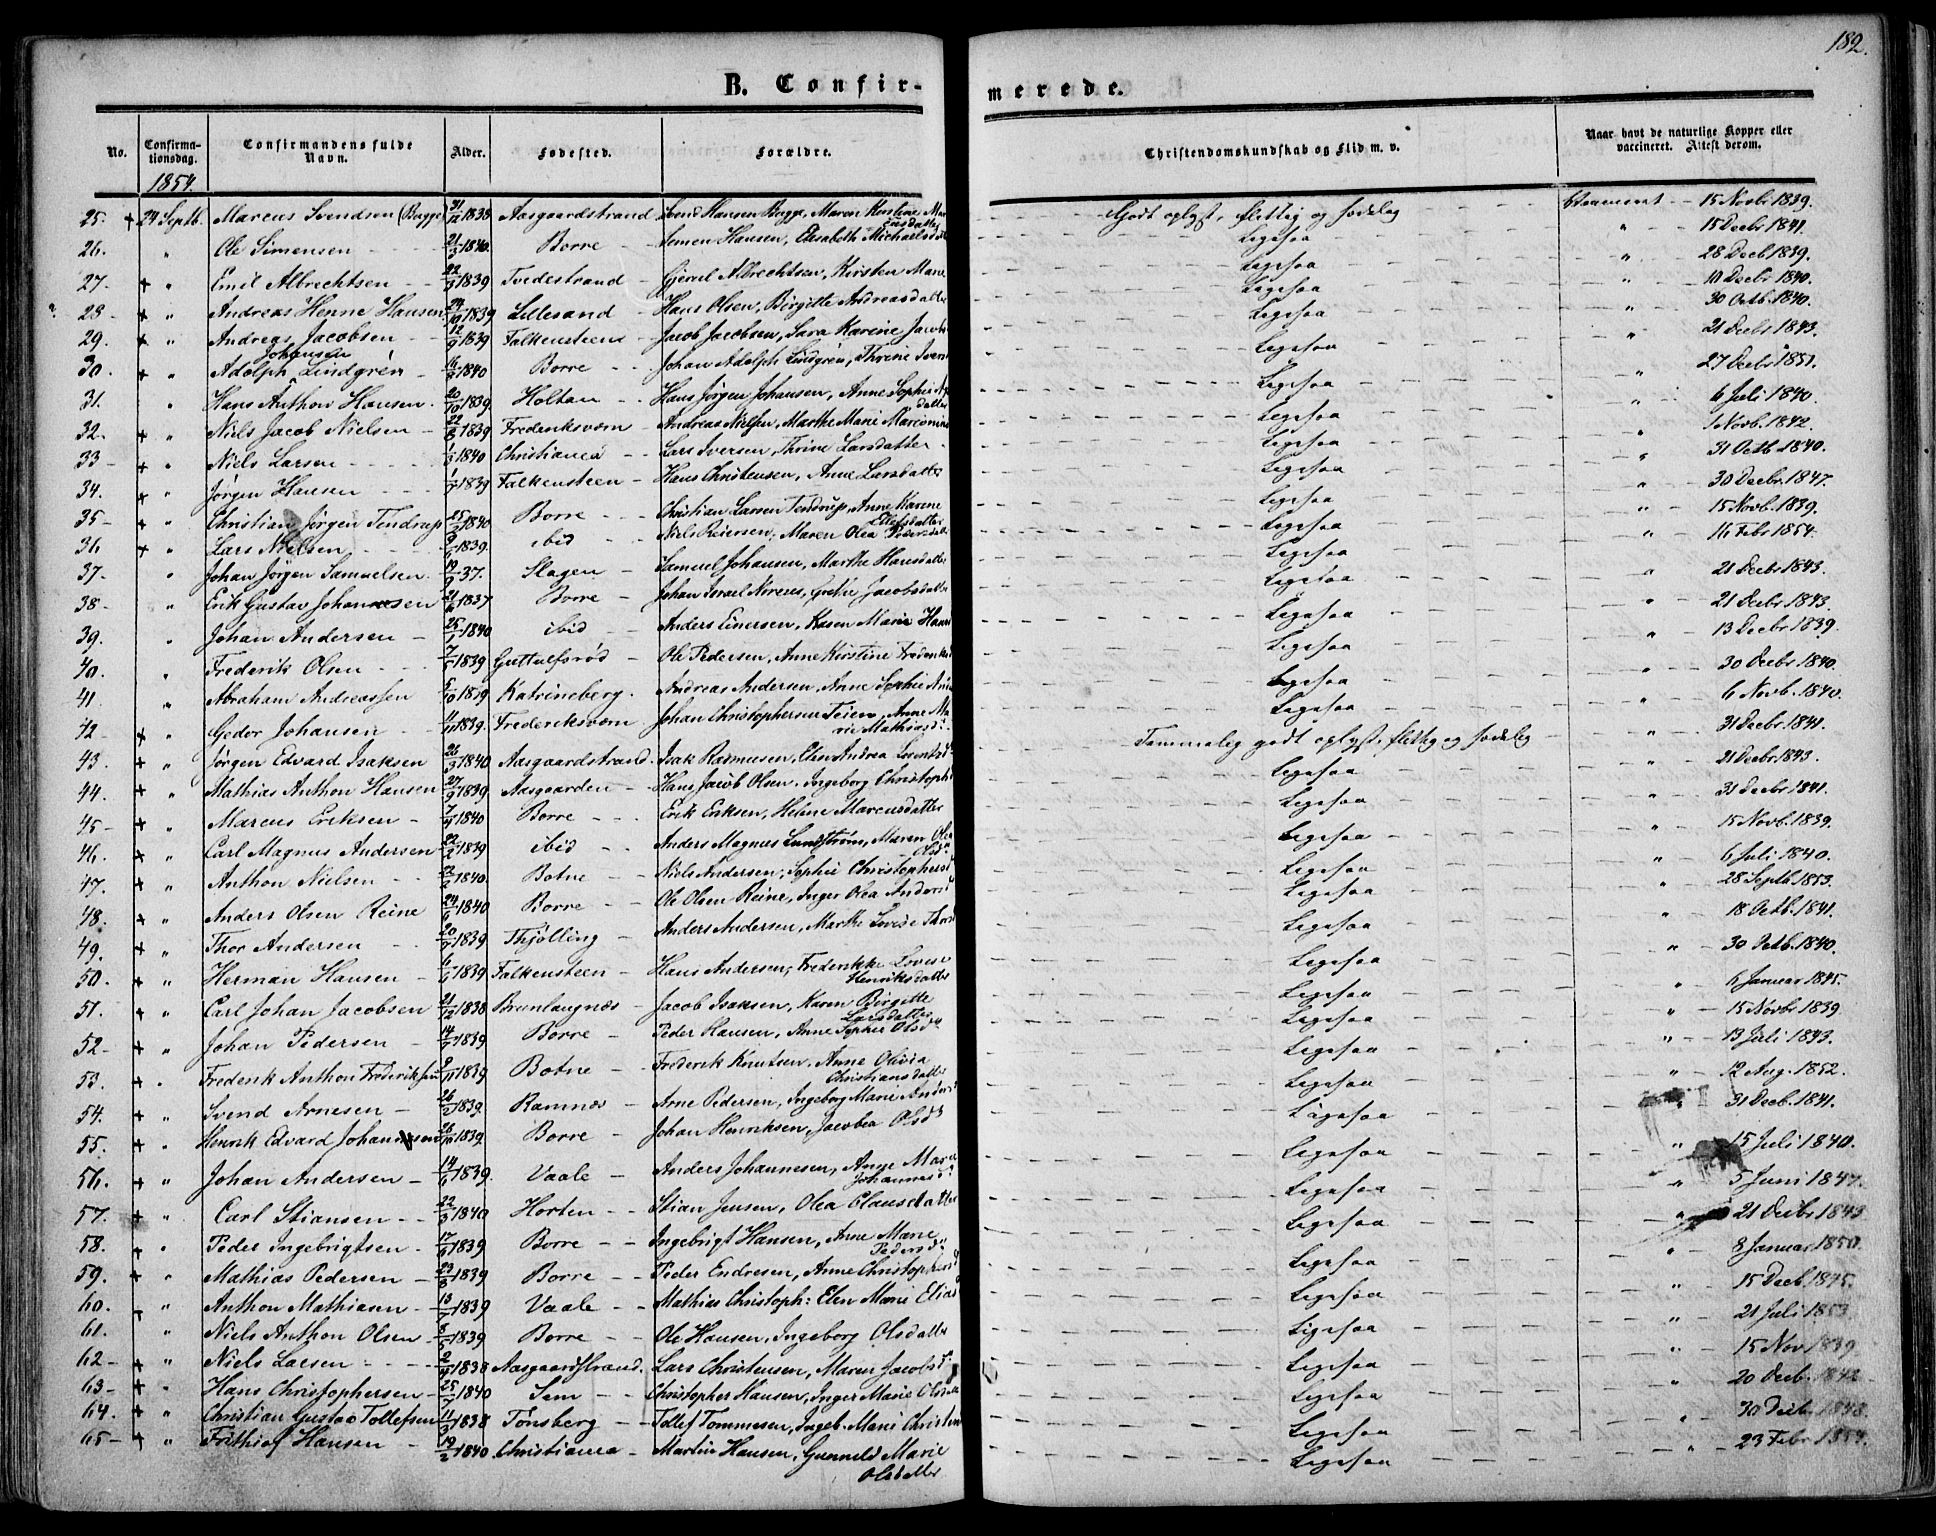 182.
B. Confir-
merede.
No.
Confirma-
tionsdag.
Confirmandens fulde
Navn.
Alder.
Fødested.
Forældre.
Christendomskundskab og Flid m. v.
Naar havt de naturlige Kopper eller
vaccineret. Attest derom.
1854.
25. + 24 Septb. Marcus Svendsen (Bugge) 31/12 1838 Aasgaardstrand Svend Hansen Bugge, Maren Kirstine Godt oplyst, flittig og sædelig 15 Novbr 1839.
26. " Ole Simensen 21/3 1840 Borre Semen Hansen, Elisabeth Michaelsd Ligesaa " 15 Decbr 1841.
27. + " Emil Albrechtsen 22/3 1839 Tvedestrand Albrechtsen, Kirsten Marie Ligesaa " 28 Decb 1839.
28 + " Andreas Henne Hansen 1839 Lillesand Hans Olsen, Birgitte Andreasdatter Ligesaa " 10 Decbr 1840.
29. + " Andreas Jacobsen 12/9 1839 Falkensteen Jacob Jacobsen, Sara Karine Jacobs Ligesaa " 30 Octb. 1840.
Johansen
30. + " Adolph Lindgrén 1840 Borre Johan Adolph Lindgrén, Thrine Iver Ligesaa " 21 Decbr 1843.
31. " Hans Anthon Hansen 20/10 1839 Holtan Hans Jørgen Johansen, Anne Sophie Ligesaa " 27 Decbr 1851.
32. + " Niels Jacob Nielsen 22/8 1839 Frederiksværn Andreas Nielsen, Marthe Marie Ligesaa " 6 Juli 1840.
33 + " Niels Larsen 1/3 1840 Christiania Lars Iversen, Thrine Larsdatter Ligesaa " 1 Novb. 1842.
34. + " Jørgen Hansen 1839 Falkensteen Hans Christensen, Anne Larsdatter Ligesaa " 31 Octb 1840.
35 + " Christian Jørgen Tendrup 25/2 1840 Borre Christian Larsen Tendrup, Anne Karene Ellefsdatter Ligesaa " 30 Decbr. 1847.
36 + " Lars Nielsen 1839. ibid Niels Reiersen, Maren Olea Pedersdatter Ligesaa " 15 Novb. 1839.
37. " Johan Jörgen Samuelsen 19/9 37. Slagen Samuel Johansen, Marthe Hansdatter Ligesaa " 16 Febr 1854.
38 " Erik Gustav Johannesen 1837 Borre Johan Israel Norenes, Grethe Jacobsdatter Ligesaa " 21 Decbr 1843.
39. " Johan Andersen 25/1 1840 ibid Anders Einersen, Karen Marie Hans Ligesaa " 21 Decbr 1843.
40. " Frederik Olsen 1839 Guttulfsrød Ole Pedersen, Anne Kirstine Frederiks Ligesaa " 13 Decbr 1839.
41 " Abraham Andreassen 5/10 1839 Katrineberg. Andreas Andersen, Anne Sophie Ligesaa " 30 Decbr 1840.
42 + " Gedor Johansen 1839. Frederiksværn Johan Christophersen Teien, Anne Marie Mathiasd. Ligesaa " 6 Novb. 1840.
43. + " Jørgen Edvard Isaksen 26/3 1840 Aasgaardstrand. Isak Rasmussen, Elen Andrea Lorentsd. Temmelig godt oplyst, flittig og sædelig " 31 Decbr 1841.
44. + " Mathias Anthon Hansen 27/9 1839 Aasgaarden Hans Jacob Olsen, Ingeborg Christophd Ligesaa " 21 Decbr 1843.
45 + " Marcus Eriksen 1840 Borre Erik Eriksen, Helene Marcusdatter Ligesaa " 31 Decbr 1841.
46. + " Carl Magnus Andersen 22/2 1839 ibid Anders Magnus Lundstrøm, Maren Olea Olsd. Ligesaa " 15 Novb. 1839.
47. + " Anthon Nielsen 1840. Botne Niels Andersen, Sophie Christophersd Ligesaa " 6 Juli 1840.
48. + " Anders Olsen Reine 24/6 1840 Borre Ole Olsen Reine, Inger Olea Andersd Ligesaa " 28 Septb. 1853.
49. + " Thor Andersen 1839 Thjølling Anders Andersen, Marthe Lovise Ligesaa " 18 Octb. 1841.
50. + " Herman Hansen 1839 Falkensteen Hans Andersen, Frederikke Lovise Henriksdatter Ligesaa " 30 Octb. 1840.
51. + " Carl Johan Jacobsen 21/12 1838 Brunlaugnæs Jacob Isaksen, Karen Birgitte Larsdatter Ligesaa " 6 Januar 1845.
52 + " Johan Pedersen 14/7 1839 Borre Peder Hansen, Anne Sophie Olsd. Ligesaa " 15 Novbr 1839
53. + " Frederik Anthon Frederiksen 9/11 1839 Botne Frederik Knutsen, Anne Olivia Christiansdatter Ligesaa " 13 Juli 1843.
54. + " Svend Arnesen 26/2 1839. Ramnæs Arne Pedersen, Ingeborg Marie Andersd Ligesaa " 12 Aug. 1852.
55. + " Henrik Edvard Johannesen 1839. Borre Johan Henriksen, Jacobea Olsd Ligesaa " 31 Decb. 1841.
56. + " Johan Andersen 14/6 1839. Vaale Anders Johannesen, Anne Maria Johannesd. Ligesaa " 15 Juli 1840.
57. + " Carl Stiansen 22/3 1840 Horten Stian Jensen, Olea Clausdatter Ligesaa " 5 Juni 1847.
58. + " Peder Ingebrigtsen 1839 Borre Ingebrigt Hansen, Anne Marie Pedersd. Ligesaa " 21 Decbr 1843
59. + " Mathias Pedersen 23/8 1839 Borre Peder Endresen, Anne Christophersd Ligesaa " 8 Januar 1850.
60. + " Anthon Mathiasen 1839 Vaale Mathias Christoph: Elen Marie Eliasd Ligesaa " 15 Decb 1845.
61. + " Niels Anthon Olsen 1839 Borre Ole Hansen, Ingeborg Olsdatter Ligesaa " 21 Juli 1853.
62 + " Niels Larsen 1838 Aasgaardstrand. Lars Christensen, Maren Jacobsd. Ligesaa " 15 Nov 1839
63 + " Hans Christophersen 25/7 1840 Sem Christopher Hansen, Inger Marie Olsdatter Ligesaa " 20 Decb. 1842
64. + " Christian Gustav Tollefsen 11/3 1838 Tønsberg Tollef Tommesen, Ingeb. Marie Christen Ligesaa " 30 Decbr 1848.
65 + " Frithiof Hansen 19/2 1840 Christiania Martin Hansen, Gunneld Marie Olsdatter Ligesaa " 23 Febr 1854.